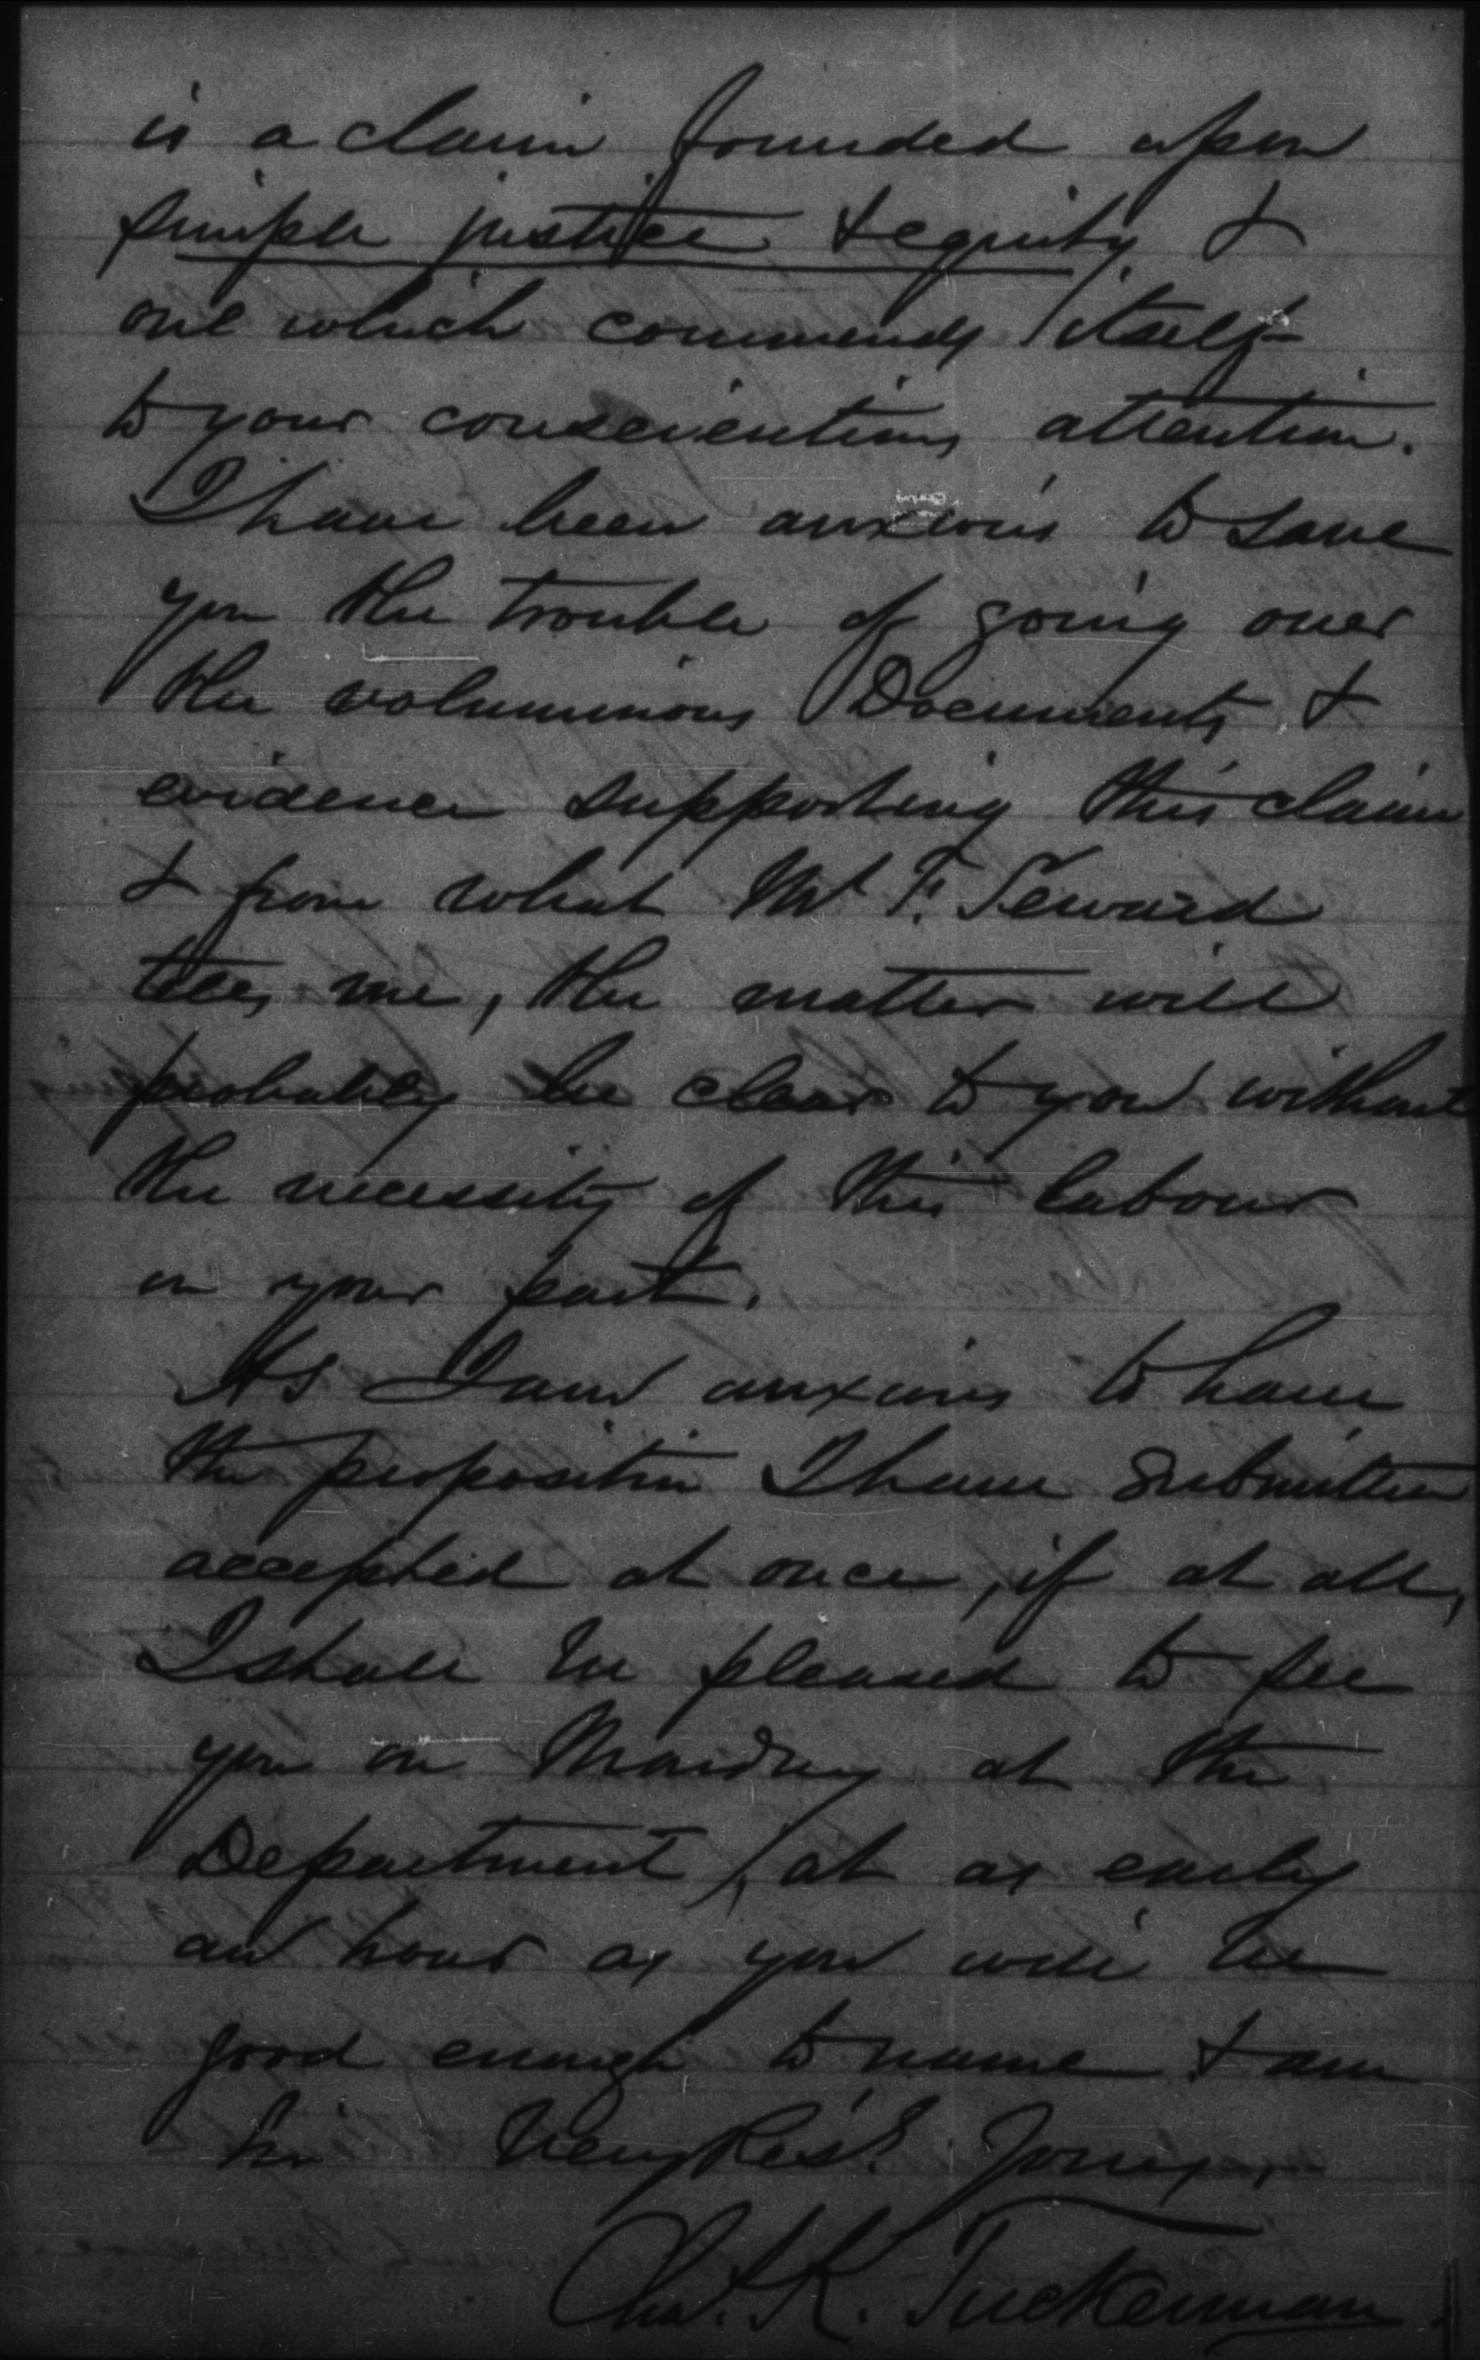 is a claim founded upon
simple justice & equity &
one which commends itself
to your conscientious attention.
I have been anxious to save
you the trouble of going over
the voluminous Documents &
evidence supporting this claim
& from what Mr F. Seward
tells me, the matter will
probably be clear to you without
the necessity of this labour
on your part.
As I am anxious to have
the proposition I have submitted
accepted at once, if at all,
I shall be pleased to see
you on Monday at the
Department, at as early
an hour as you will be
good enough to name & am
Sir Very Resy. Yours,
Chas. K. Tuckerman.